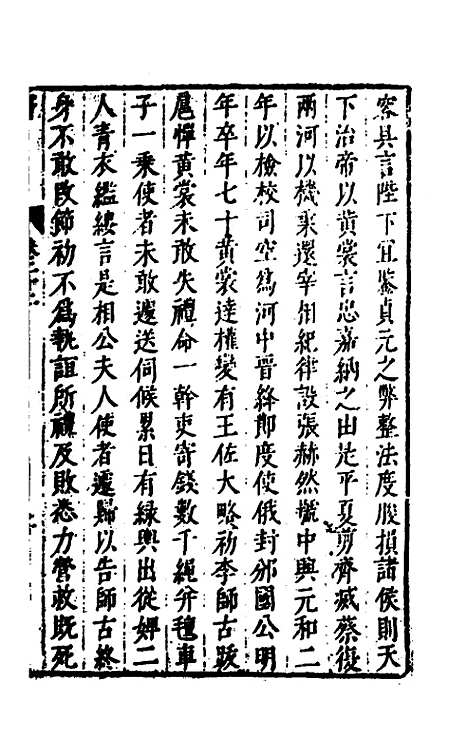 容具言陛下宜鑒貞元之弊整法度股損諸侯則天
下治帝以黃裳言忠嘉納之由是平夏剪齊滅蔡復
兩河以機秉還宰相紀律設張赫然號中興元和二
年以檢校司空為河中晉絳節度使俄封邠國公明
年卒年七十黃裳達權變有王佐大略初李師古跋
扈憚黃裳未敢失禮命一幹吏寄錢數千繩并氊車
子一乗使者未敢遽送伺候累日有綠輿出從婢二
人青衣繿縷言是相公夫人使者遽歸以告師古終
身不敢改節初不為執誼所禮及敗悉力營救既死
卷之二十二